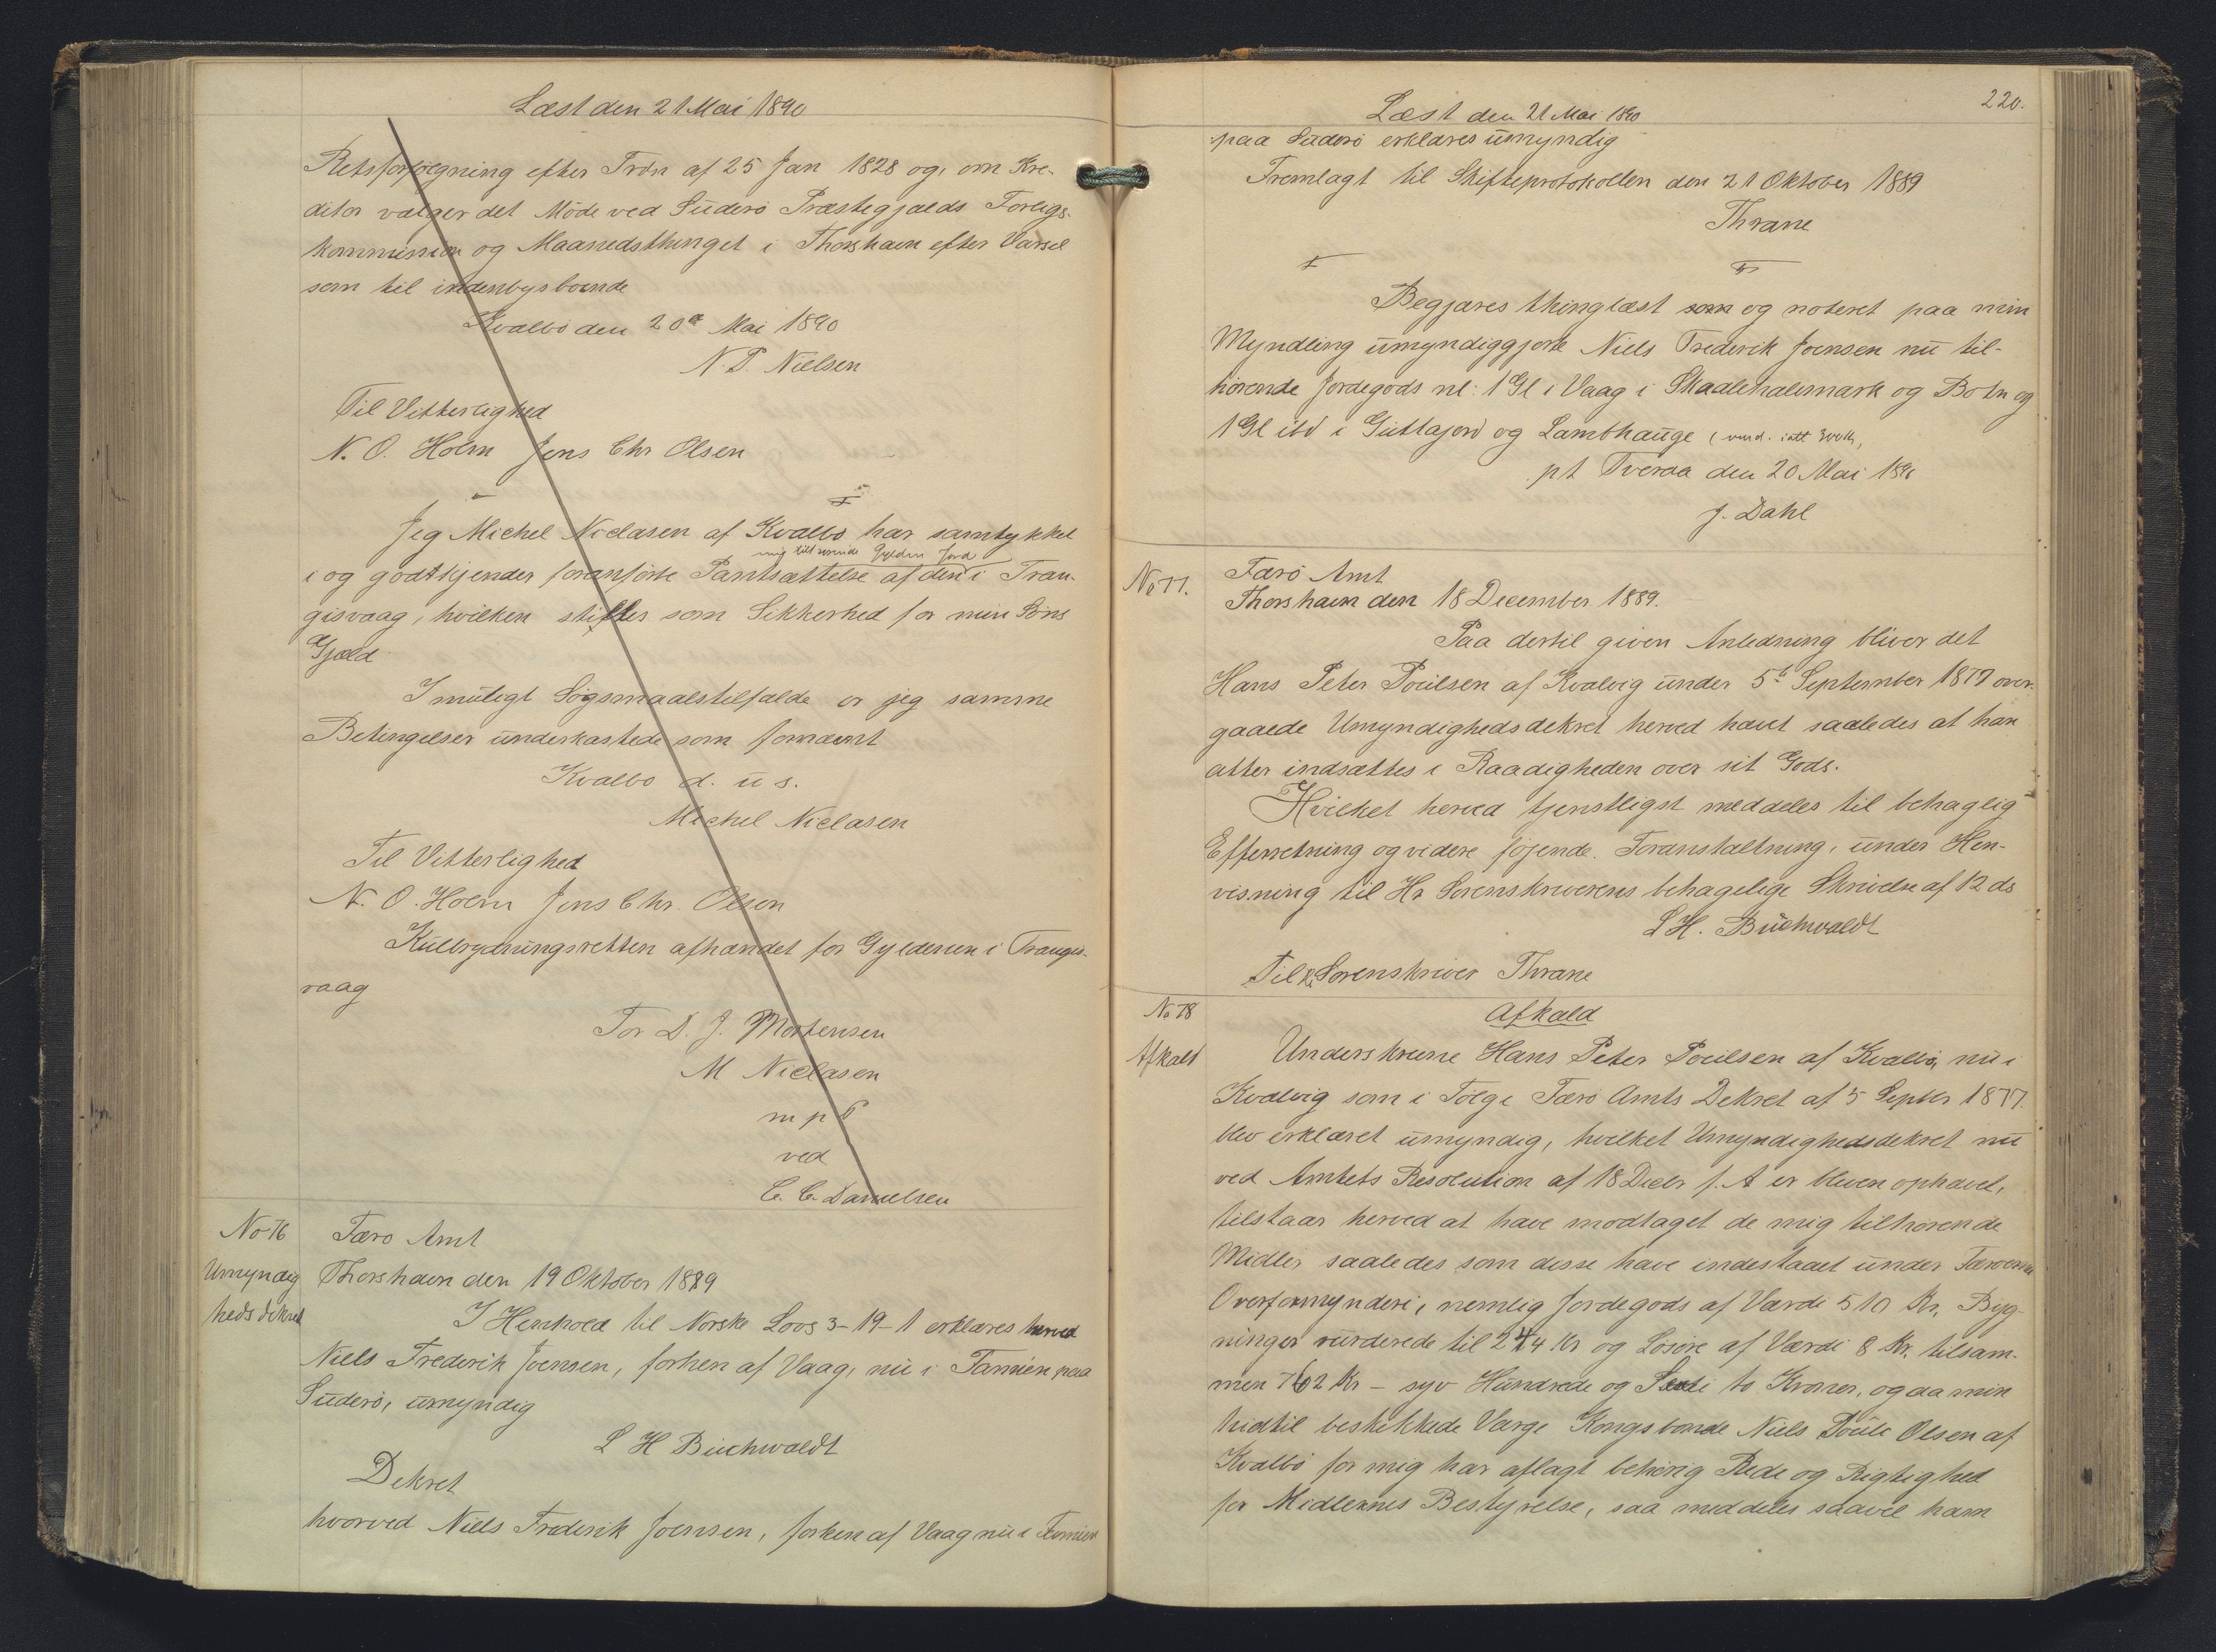 Læst den 21 Mai 1890
Retsforfølgning efter Frdn af 25 Jan 1828 og, om Kre-
ditor vælger det Møde ved Suderø Præstegjælds Forligs-
kommission og Maanedsthinget i Thorshavn efter Varsel
som til indenbysboende
Kvalbø den 20de Mai 1890
N. P. Nielsen
Til Vitterlighed
N. O. Holm Jens Chr Olsen
Jeg Michel Niclasen af Kvalbø har samtykket
mig tilhørende Gylden Jord
i og godtkjender foranførte Pantsættelse af den i Tran-
gisvaag, hvilken stilles som Sikkerhed for min Søns
Gjæld
I muligt Søgsmaalstilfælde er jeg samme
Betingelser underkastede som fornævnt
Kvalbø d. u s.
Michel Niclasen
Til Vitterlighed
N. O. Holm Jens Chr. Olsen
Kulbrydningsretten afhændet for Gyldenen i Trangis-
vaag
For D. J. Mortensen
M Niclasen
m p
ved
C. C. Danielsen
No 76
Umyndig
heds dekret
Færø Amt
Thorshavn den 19 Oktober 1889
I Henhold til Norske Lovs 3-19-1 erklæres herved
Niels Frederik Joensen, forhen af Vaag, nu i Famien paa
Suderø, umyndig
L H Buchwaldt
Dekret
hvorved Niels Frederik Joensen, forhen af Vaag nu i Famien
220.
Læst den 21 Mai 1890
paa Suderø erklæres umyndig
Fremlagt til Skifteprotokollen den 21 Oktober 1889
Thrane
Begjæres thinglæst som og noteret paa min
Myndling umyndiggjorte Niels Frederik Joensen nu til-
hørende Jordegods nl: 1 Gl i Vaag i Skaalehalsmark og Botn og
1 Gl ibd i Guttajord og Lambhauge
pt Tveraa den 20 Mai 1890
J. Dahl
No 77.
Færø Amt
Thorshavn den 18 December 1889.
Paa dertil given Anledning bliver det
Hans Peter Poulsen af Kvalvig under 5te September 1877 over-
gaaede Umyndighedsdekret herved hævet saaledes at han
atter indsættes i Raadigheden over sit Gods.
Hvilket herved tjenstligst meddeles til behagelig
Efterretning og videre føjende Foranstaltning, under Hen-
visning til Hr Sorenskriverens behagelige Skrivelse af 12 ds
L H. Buchwaldt
Til Hr Sorenskriver Thrane
No 78
Afkald
Afkald
Underskrevne Hans Peter Poulsen af Kvalbø, nu i
Kvalvig som i Følge Færø Amts Dekret af 5 Septbr 1877.
blev erklæret umyndig, hvilket Umyndighedsdekret nu
ved Amtets Resolution af 18 Decbr f. A er bleven ophævet,
tilstaar herved at have modtaget de mig tilhørende
Midler saaledes som disse have indestaaet under Færøernes
Overformynderi, nemlig Jordegods af Værdi 510 Kr, Byg-
ninger vurderede til 244 Kr og Løsøre af Værdi 8 Kr. tilsam-
men 762 Kr - syv Hundrede og Sexti to Kroner, og da min
hidtil beskikkede Værge Kongsbonde Niels Poule Olsen af
Kvalbø for mig har aflagt behørig Rede og Rigtighed
for Midlernes Bestyrelse, saa meddeles saavel ham